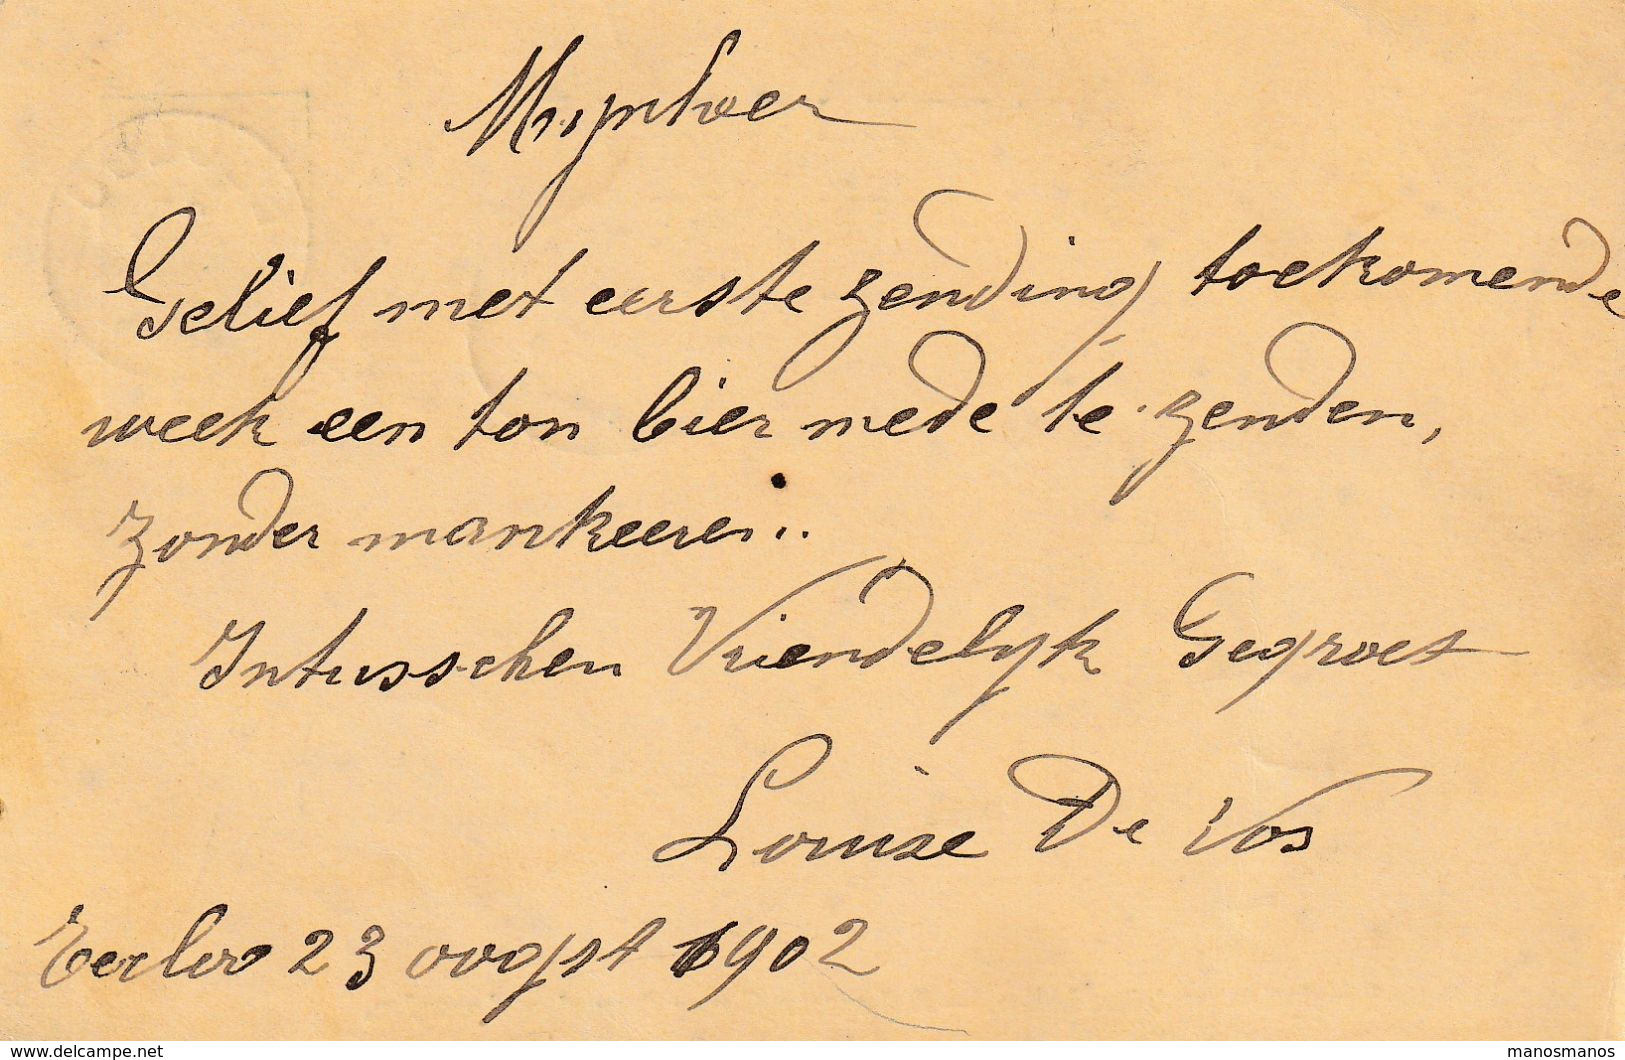 Mijnheer
Gelief met eerste zending toekomende
week een ton bier mede te zenden,
zonder mankeeren..
Intusschen Vriendelyk Gegroet
Louise De Vos
Eecloo 23 oogst 1902
delcampe.net
manosmanos